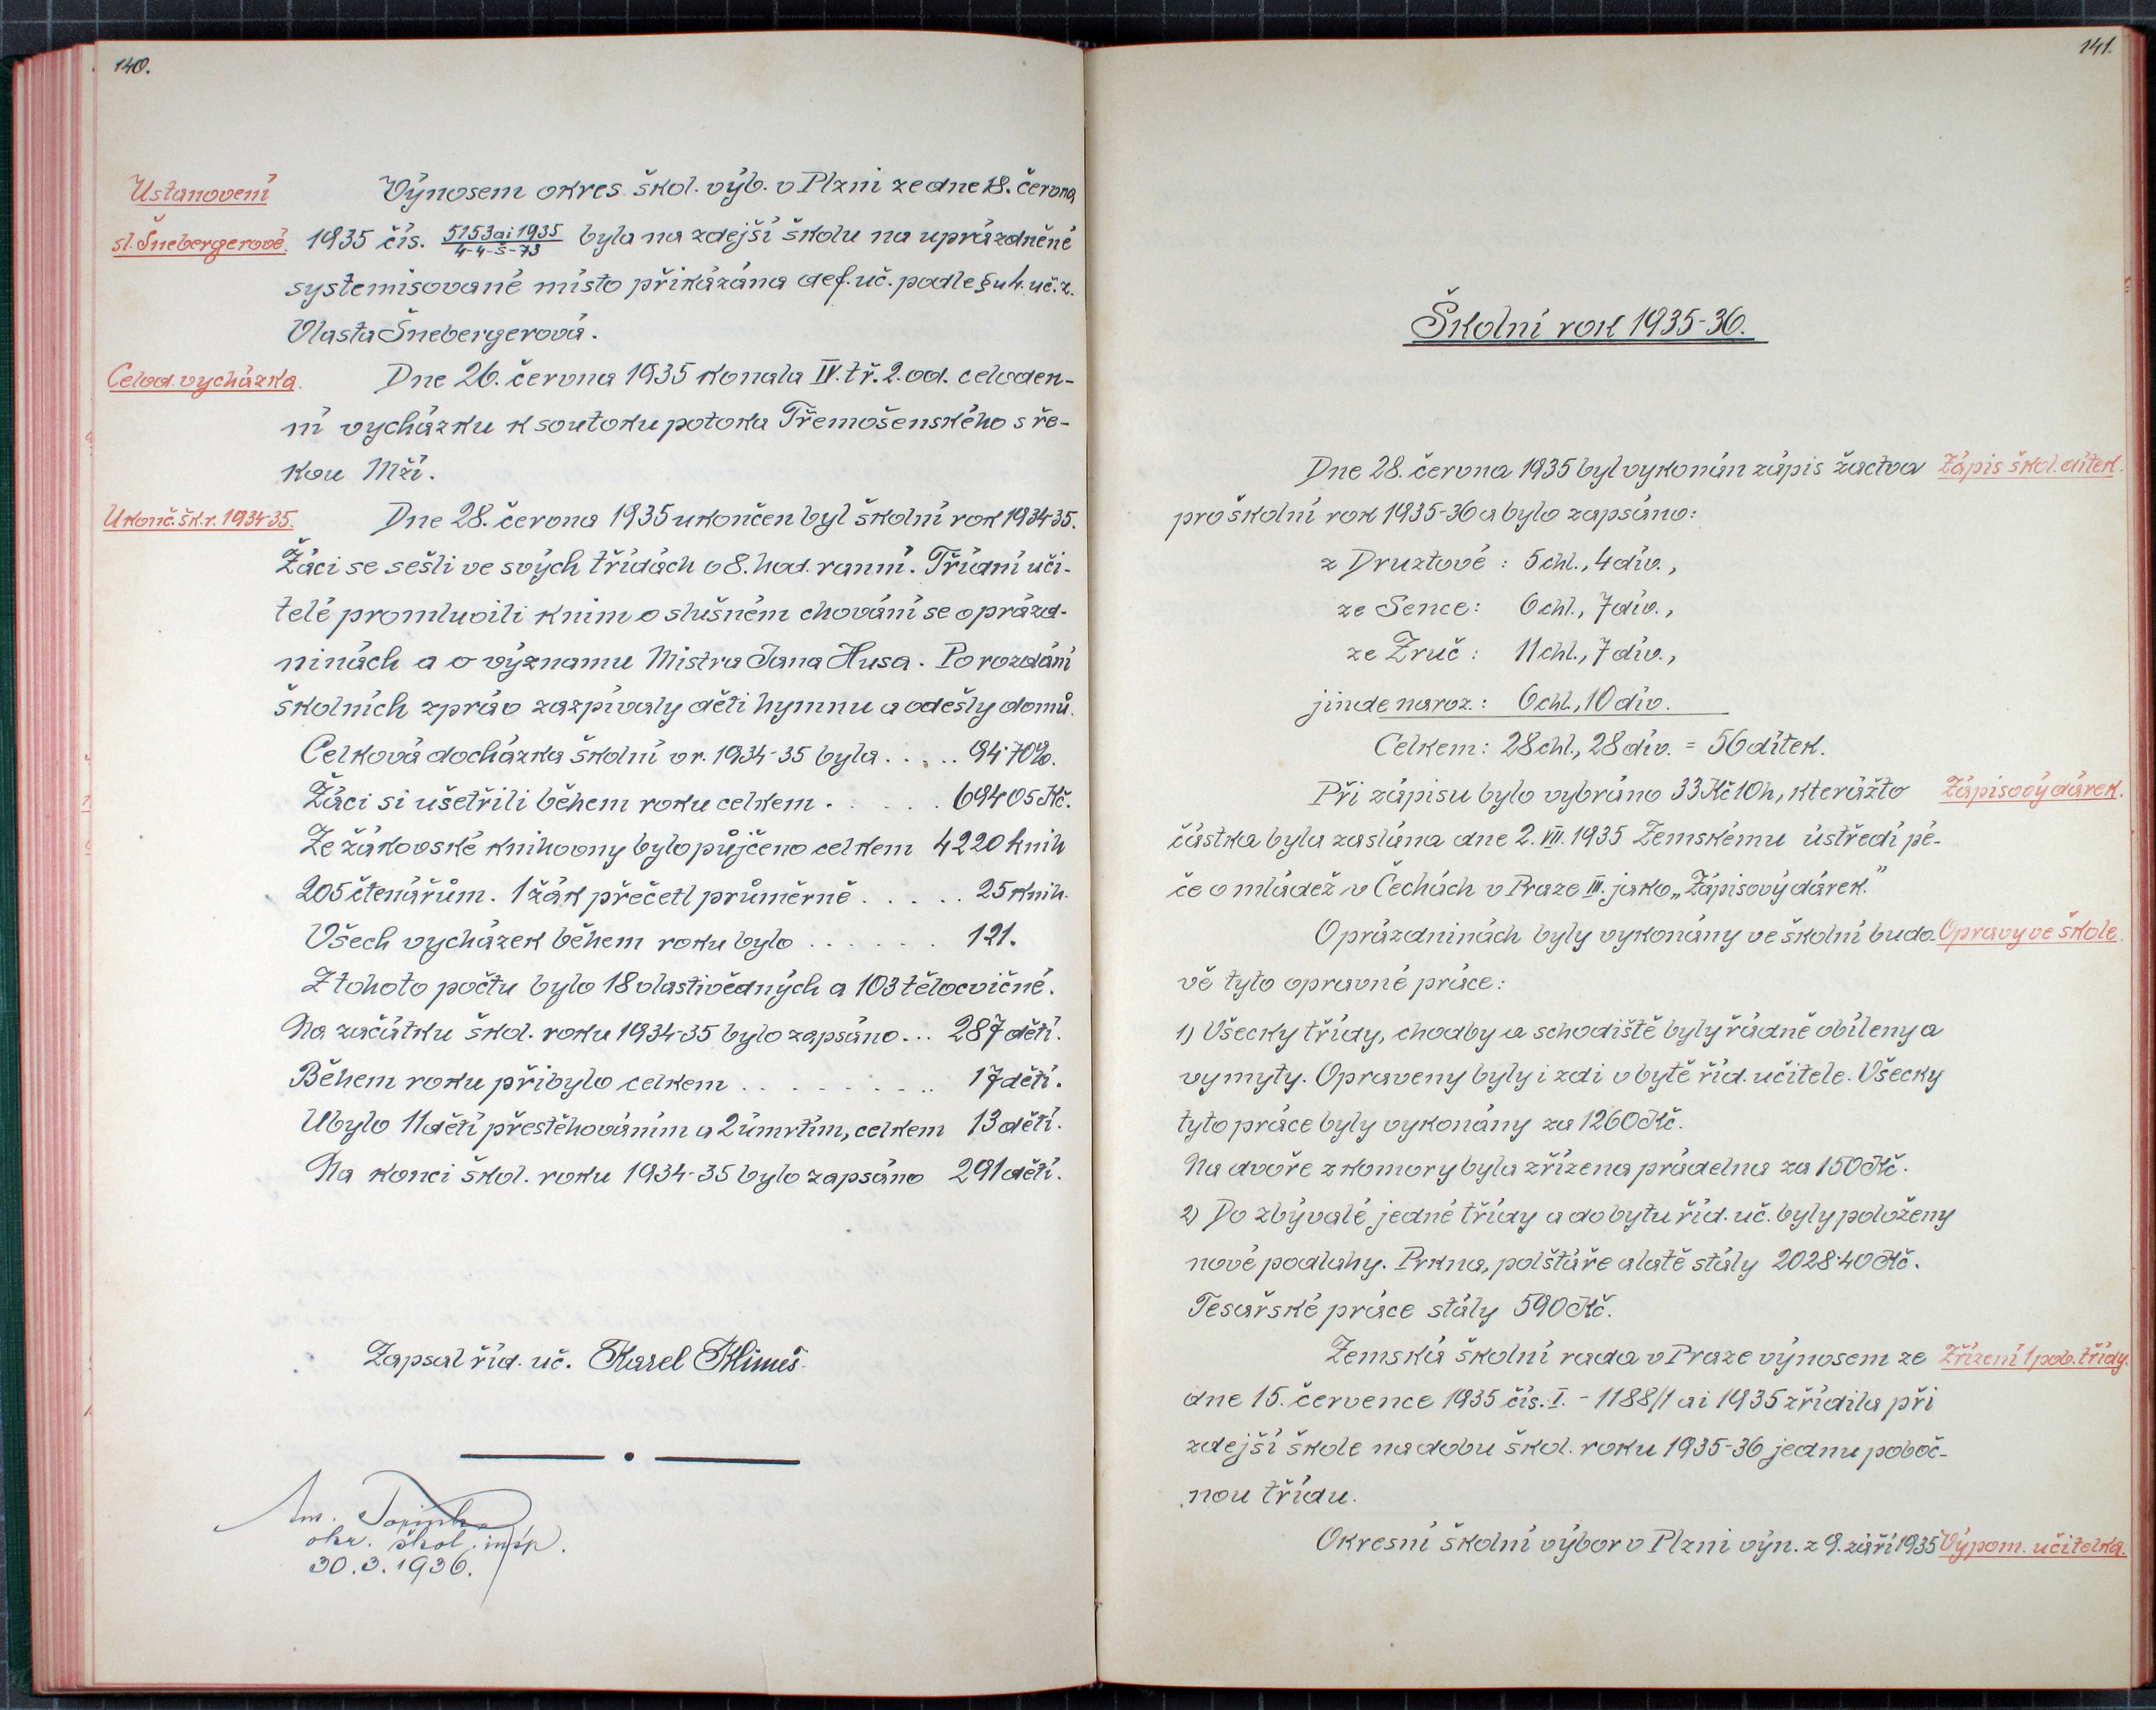 140.
Ustanovení
sl. Šnebergerové.
Výnosem okres. škol. výb. v Plzni ze dne 18. června
1935 čís. 5153 ai 1935 / 4-4-Š-73 byla na zdejší školu na uprázdněné
systemisované místo přikázána def. uč. podle § u h. uč. z.
Vlasta Šnebergerová.
Celod. vycházka.
Dne 26. června 1935 konala IV. tř. 2. od. celoden-
ní vycházku k soutoku potoka Třemošenského s ře-
kou Mží.
Ukonč. šk. r. 1934-35.
Dne 28. června 1935 ukončen byl školní rok 1934-35.
Žáci se sešli ve svých třídách o 8. hod. ranní. Třídní uči-
telé promluvili k nim o slušném chování se o prázd-
ninách a o významu Mistra Jana Husa. Po rozdání
školních zpráv zazpívaly děti hymnu a odešly domů.
Celková docházka školní v r. 1934-35 byla . . . . . 94·70%.
Žáci si ušetřili během roku celkem . . . . . . 69405 Kč.
Ze žákovské knihovny bylo půjčeno celkem 4220 knih
205 čtenářům. 1 žák přečetl průměrně . . . . . 25 knih.
Všech vycházek během roku bylo . . . . . . 121.
Z tohoto počtu bylo 18 vlastivědných a 103 tělocvičné.
Na začátku škol. roku 1934-35 bylo zapsáno . . . 287 dětí.
Během roku přibylo celkem . . . . . . . . . 17 dětí.
Ubylo 11 dětí přestěhováním a 2 úmrtím, celkem 13 dětí.
Na konci škol. roku 1934-35 bylo zapsáno 291 dětí.
Zapsal říd. uč. Karel Klimeš.
okr. škol. insp.
30.3.1936.
141.
Školní rok 1935-36.
Dne 28. června 1935 byl vykonán zápis žactva
Zápis škol. dítek.
pro školní rok 1935-36 a bylo zapsáno:
z Druztové : 5 chl., 4 dív.,
ze Sence : 6 chl., 7 dív.,
ze Zruč : 11 chl., 7 dív.,
jinde naroz. : 6 chl., 10 dív.
Celkem : 28 chl., 28 dív. = 56 dítek.
Při zápisu bylo vybráno 33 Kč 10 h, kterážto
Zápisový dárek.
částka byla zaslána dne 2. VII. 1935 Zemskému ústředí pé-
če o mládež v Čechách v Praze III. jako „Zápisový dárek."
O prázdninách byly vykonány ve školní budo-
Opravy ve škole.
vě tyto opravné práce:
1) Všecky třídy, chodby a schodiště byly řádně obíleny a
vymyty. Opraveny byly i zdi v bytě říd. učitele. Všecky
tyto práce byly vykonány za 1260 Kč.
Na dvoře z komory byla zřízena prádelna za 150 Kč.
2) Do zbývalé jedné třídy a do bytu říd. uč. byly položeny
nové podlahy. Prkna, polštáře a latě stály 2028·40 Kč.
Tesařské práce stály 590 Kč.
Zemská školní rada v Praze výnosem ze
Zřízení 1 pob. třídy.
dne 15. července 1935 čís. I. - 1188/1 ai 1935 zřídila při
zdejší škole na dobu škol. roku 1935-36 jednu poboč-
nou třídu.
Okresní školní výbor v Plzni výn. z 9. září 1935
Výpom. učitelka.